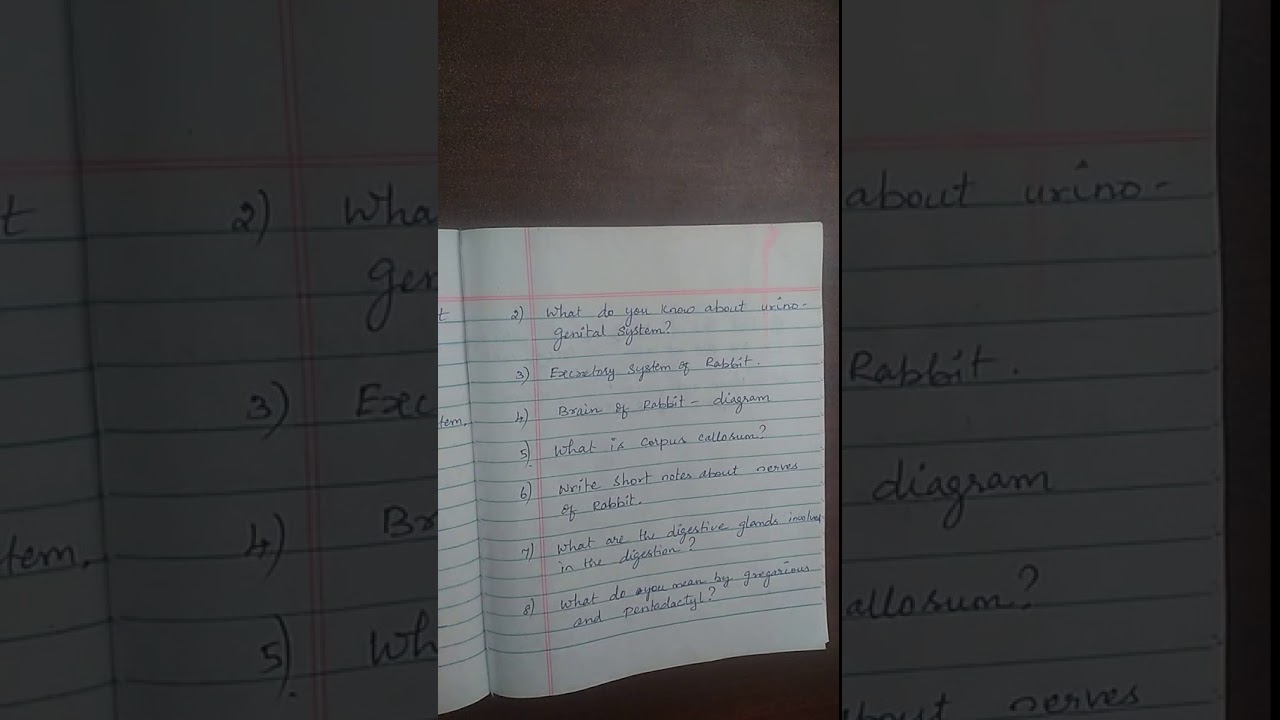 t
tem.
2) What do you know about urino-
genital system?
3) Excretory system of Rabbit.
4) Brain of Rabbit - diagram
5) What is corpus callosum?
6) Write short notes about nerves
of Rabbit.
7) What are the digestive glands involved
in the digestion?
8) What do you mean by gregarious
and pentadactyl?